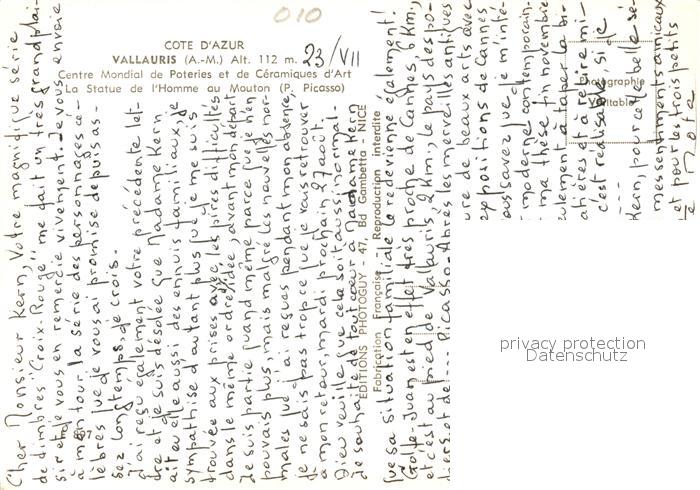 010
COTE D'AZUR
VALLAURIS (A.-M.) Alt. 112 m. 23/VII
Centre Mondial de Poteries et de Céramiques d'Art
La Statue de l'Homme au Mouton (P. Picasso)
Cher Monsieur Kern, Votre magnifique série
de timbres "Croix-Rouge" me fait un très grand plai-
sir et je vous en remercie vivement. Je vous envoie
à mon tour la série des personnages cé-
lèbres que je vous ai promise depuis as-
sez longtemps, je crois.
J'ai reçu également votre précédente let-
tre et je suis désolée que Madame Kern
ait eu elle aussi des ennuis familiaux. Je
sympathise d'autant plus que je me suis
trouvée aux prises avec les pires difficultés
dans le même ordre d'idée, avant mon départ
Je suis partie quand même parce que je n'en
pouvais plus, mais malgré les nouvelles nor-
males que j'ai reçues pendant mon absence,
je ne sais pas trop ce que je vais retrouver
à mon retour, mardi prochain, 27 août
Dieu veuille que cela soit à peu normal.
Je souhaite de tout cœur à Madame Kern
EDITIONS PHOTOGUY - 47, Bd Gambetta - NICE
Fabrication Française - Reproduction interdite
que sa situation familiale le redevienne également!
Golfe-Juan est en effet très proche de Cannes, 6 Km.,
et c'est au pied de Vallauris, 2 Km., le pays des po-
tiers et de --- Picasso. Après les merveilles antiques
de beaux arts avec
expositions de Cannes
vous savez que je m'inté-
moderne contemporain.
ma thèse fin novembre
seulement à taper la bi-
et à refaire
c'est réalisable, si de
Photographie
Véritable
Kern, pour cette belle sé-
mes sentiments amicaux
et pour les trois petits
privacy protection
Datenschutz